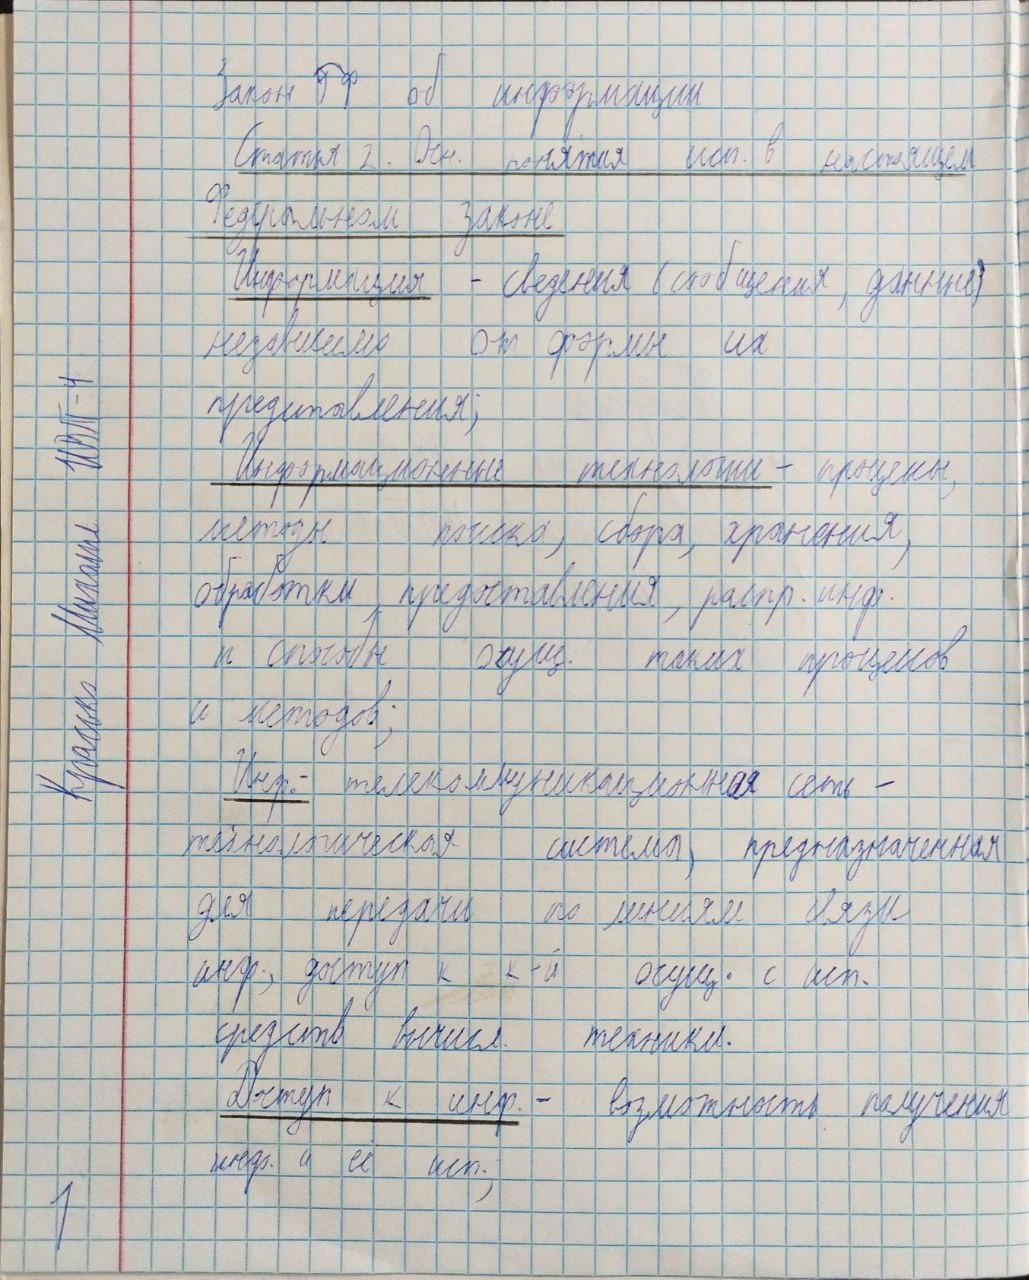 Закон РФ об информации
Статья 2. Осн. понятия исп. в настоящем
Федеральном законе
Информация - сведения (сообщения, данные)
независимо от формы их
представления;
Информационные технологии - процессы,
методы поиска, сбора, хранения,
обработки, предоставления, распр. инф.
и способы осущ. таких процессов
и методов;
Инф.- телекоммуникационная сеть -
технологическая системы, предназначенная
для передачи по линиям связи
инф., доступ к к-й осущ. с исп.
средств вычисл. техники.
Доступ к инф. - возможность получения
инф. и её исп.;
Михаил
1